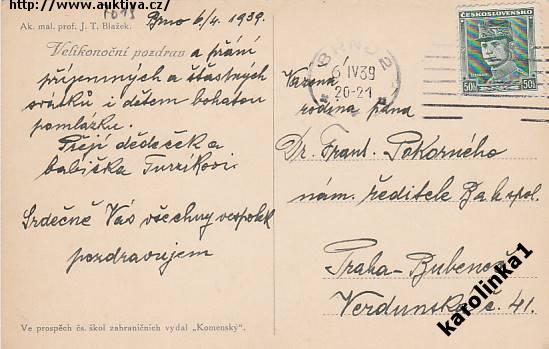 http://www.auktiva.cz/
1613
Ak. mal. prof. J. T. Blažek.
Brno 6/4. 1939.
Velikonoční pozdrav a přání
příjemných a šťastných
svátků i dětem bohatou
pomlázku.
Přejí dědeček a
babička Turzíkovi.
Srdečně Vás všechny vespolek
pozdravujem
Ve prospěch čs. škol zahraničních vydal „Komenský“.
ČESKOSLOVENSKO
50h 50h
BRNO 2
6 IV 39
20-21
Vážená
rodina pána
Dr. Frant. Pokorného
nám. ředitele
Praha-Bubeneč
Verdunská č. 41.
karolinka1